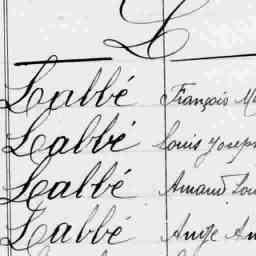 L
Labbé François
Labbé Louis Joseph
Labbé Amand
Labbé Ange